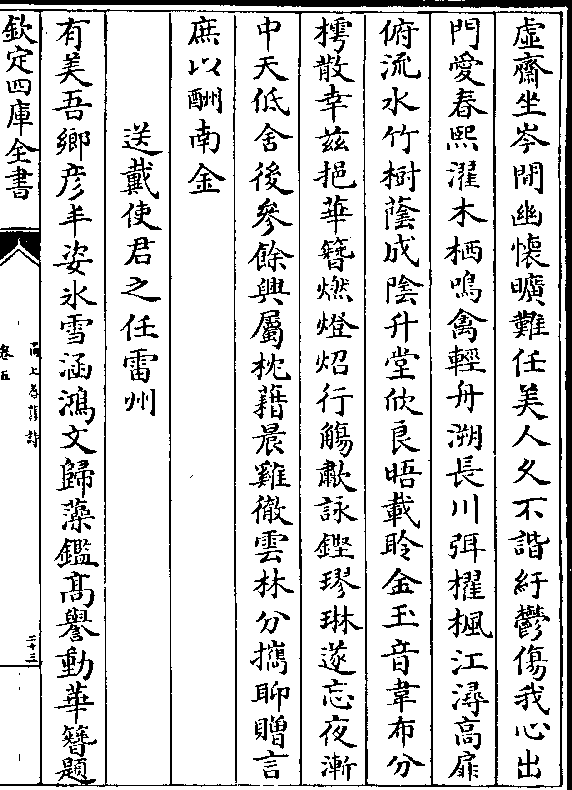 虛齋坐岑閒幽懷曠難任美人久不諧紆鬱傷我心出
門愛春熙濯木栖鳴禽輕舟溯長川弭櫂楓江潯高扉
俯流水竹樹蔭成陰升堂欣良晤載聆金玉音韋布分
樗散幸兹挹華簪燃燈炤行觴歗詠鏗璆琳遂忘夜漸
中天低舍後參餘興屬枕藉晨雞徹雲林分攜聊贈言
庶以酬南金
送戴使君之任雷州
有美吾鄉彦丰姿氷雪涵鴻文歸藻鑑髙譽動華簪題
欽定四庫全書
卷五
二十三